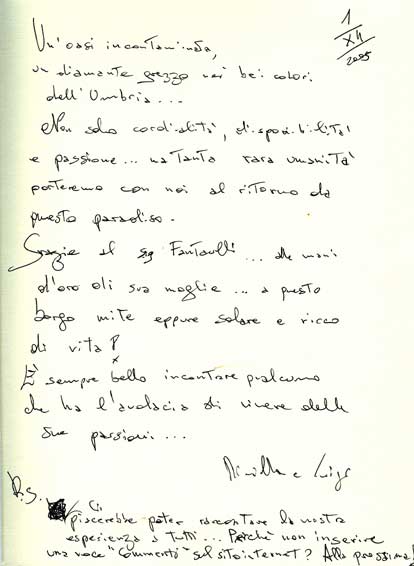 1
XII
2005
Un'oasi incontaminata,
un diamante grezzo nei bei colori
dell'Umbria...
Non solo cordialità, disponibilità
e passione... ma tanta rara umanità
porteremo con noi al ritorno da
questo paradiso.
Grazie al sig Fantauzzi... alle mani
d'oro di sua moglie... a questo
borgo mite eppure solare e ricco
di vita!
È sempre bello incontrare qualcuno
che ha l'audacia di vivere delle
sue passioni...
e Luigi
P.S. Ci
piacerebbe poter raccontare la nostra
esperienza a tutti... Perchè non inserire
una voce "commenti" sul sito internet? Alla prossima!